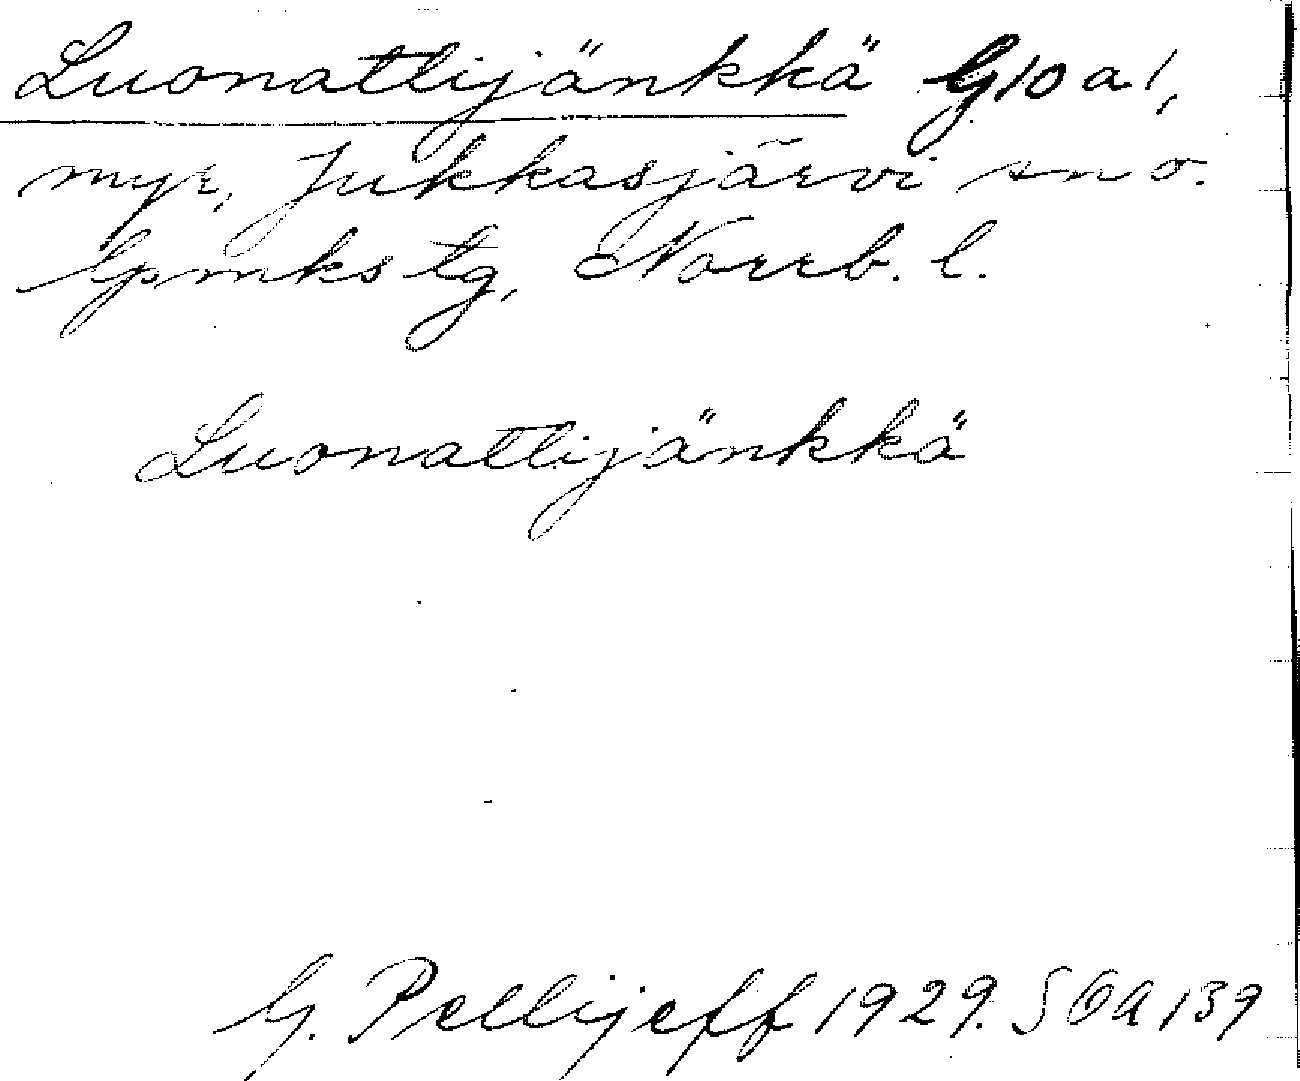 Luonattijänkkä G10a1,
myr, Jukkasjärvi sn o.
Gpmks tg, Norrb. l.
Luonattijänkkä
G. Pellijeff 1929. SOA 139